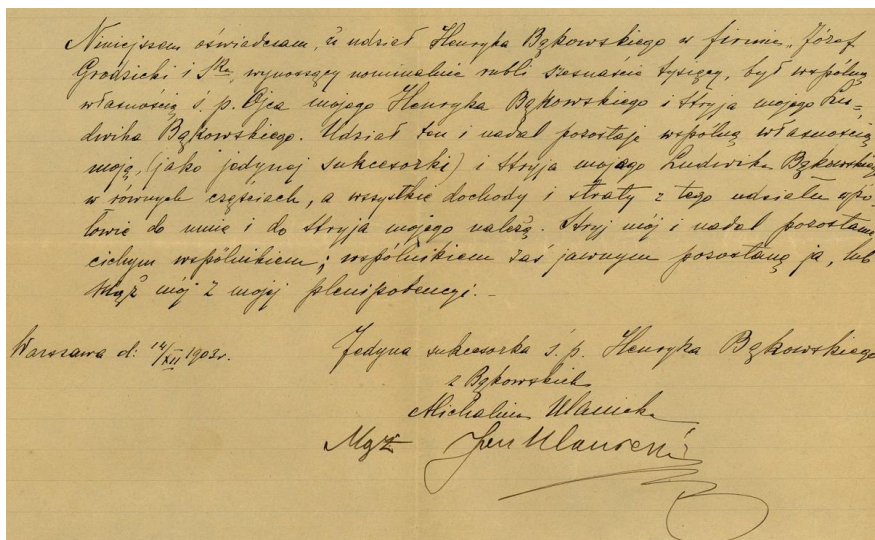 Niniejszem oświadczam, że udział Henryka Bąkowskiego w firmie „Józef
Grodzicki i Ska, wynoszący nominalnie rubli szesnaście tysięcy, był wspólną
własnością ś. p. Ojca mojego Henryka Bąkowskiego i Stryja mojego Lu=
dwika Bąkowskiego. Udział ten i nadal pozostaje wspólną własnością
moją, (jako jedynej sukcesorki) i Stryja mojego Ludwika Bąkowskiego
w równych częściach, a wszystkie dochody i straty z tego udziału wpo-
łowie do mnie i do Stryja mojego należą. Stryj mój i nadal pozostanie
cichym wspólnikiem; wspólnikiem zaś jawnym pozostanę ja, lub
Mąż mój z mojej plenipotencyi. –
Warszawa d: 14/XII 1903r.
Jedyna sukcesorka ś. p. Henryka Bąkowskiego
z Bąkowskich
Michalina Ulanicka
Mąż Jan Ulanicki